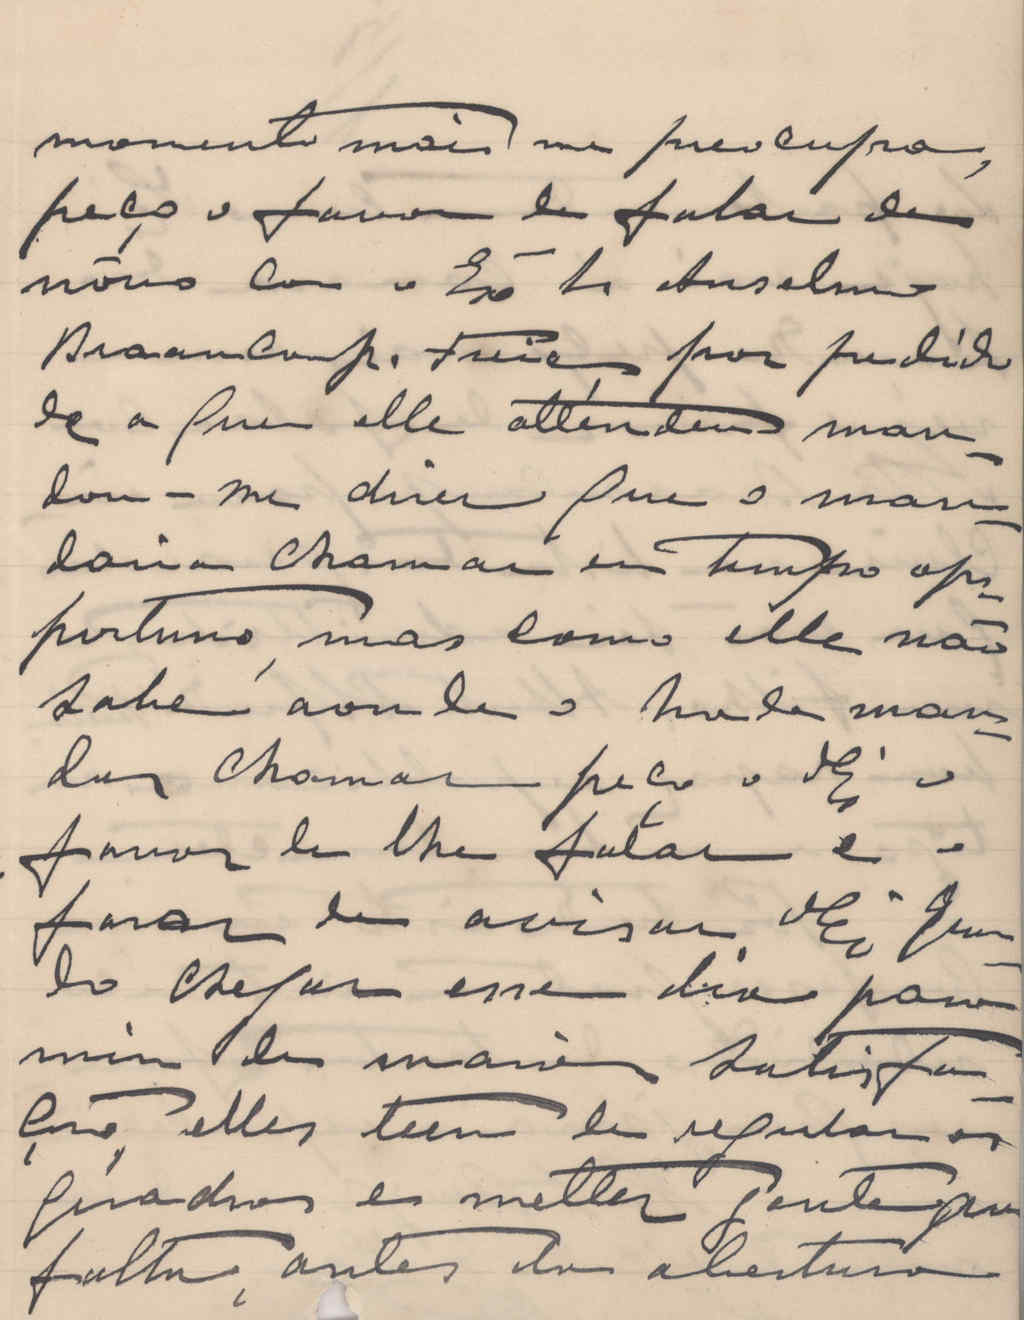 momento mais me preocupa,
peço o favor de falar de
nôvo com o Exmo Sr Anselmo
Braancamp. Freire, por pedido
de a quem elle attendeu man-
dou-me dizer que o man-
daria chamar em tempo op-
portuno, mas como elle não
sabe aonde o hade man-
dar chamar peço a VExa o
favor de lhe falar e o
favor de avisar VExa quan-
do chegar esse dia para
mim de maior satisfa-
ção, elles teem de regular os
quadros e metter gente que
falta, antes da abertura